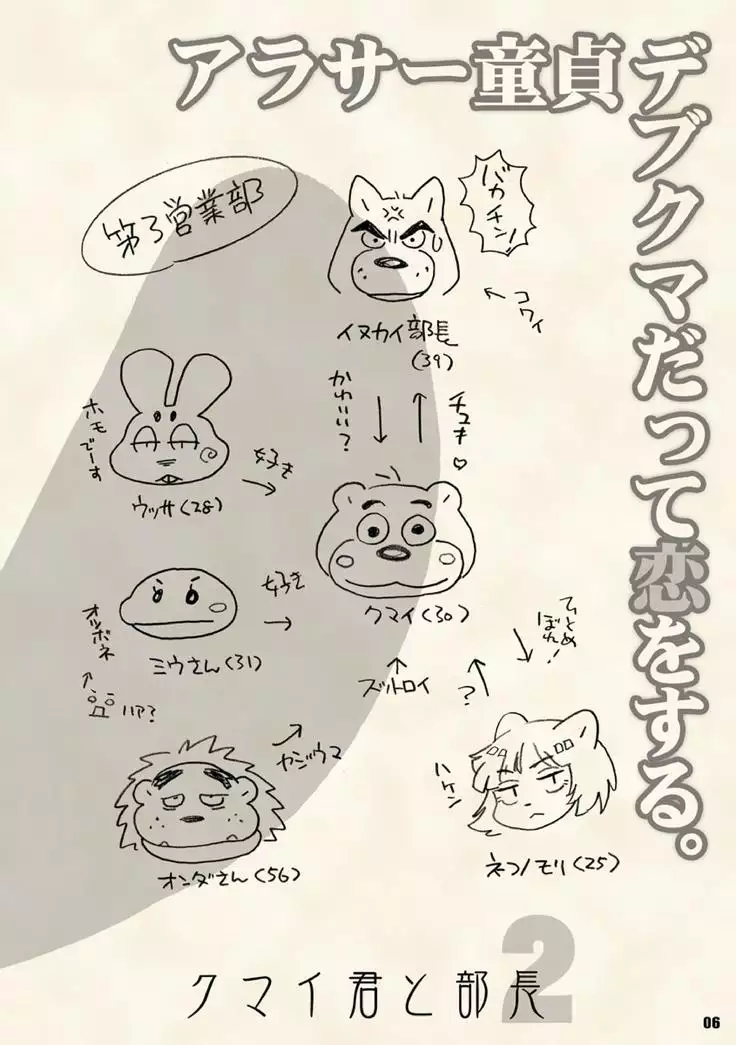 アラサー童貞デブクマだって恋をする。
第3営業部
バカチン!
コワイ
イヌカイ部長
(39)
かわいい?
チュキ♡
ホモでーす
好き
ウッサ(28)
クマイ(30)
オツボネ
好き
ミウさん(31)
ハァ?
ズットロイ
?
ひとめぼれ!
ヤジウマ
オンダさん(56)
ハケン
ネコノモリ(25)
2
クマイ君と部長
06